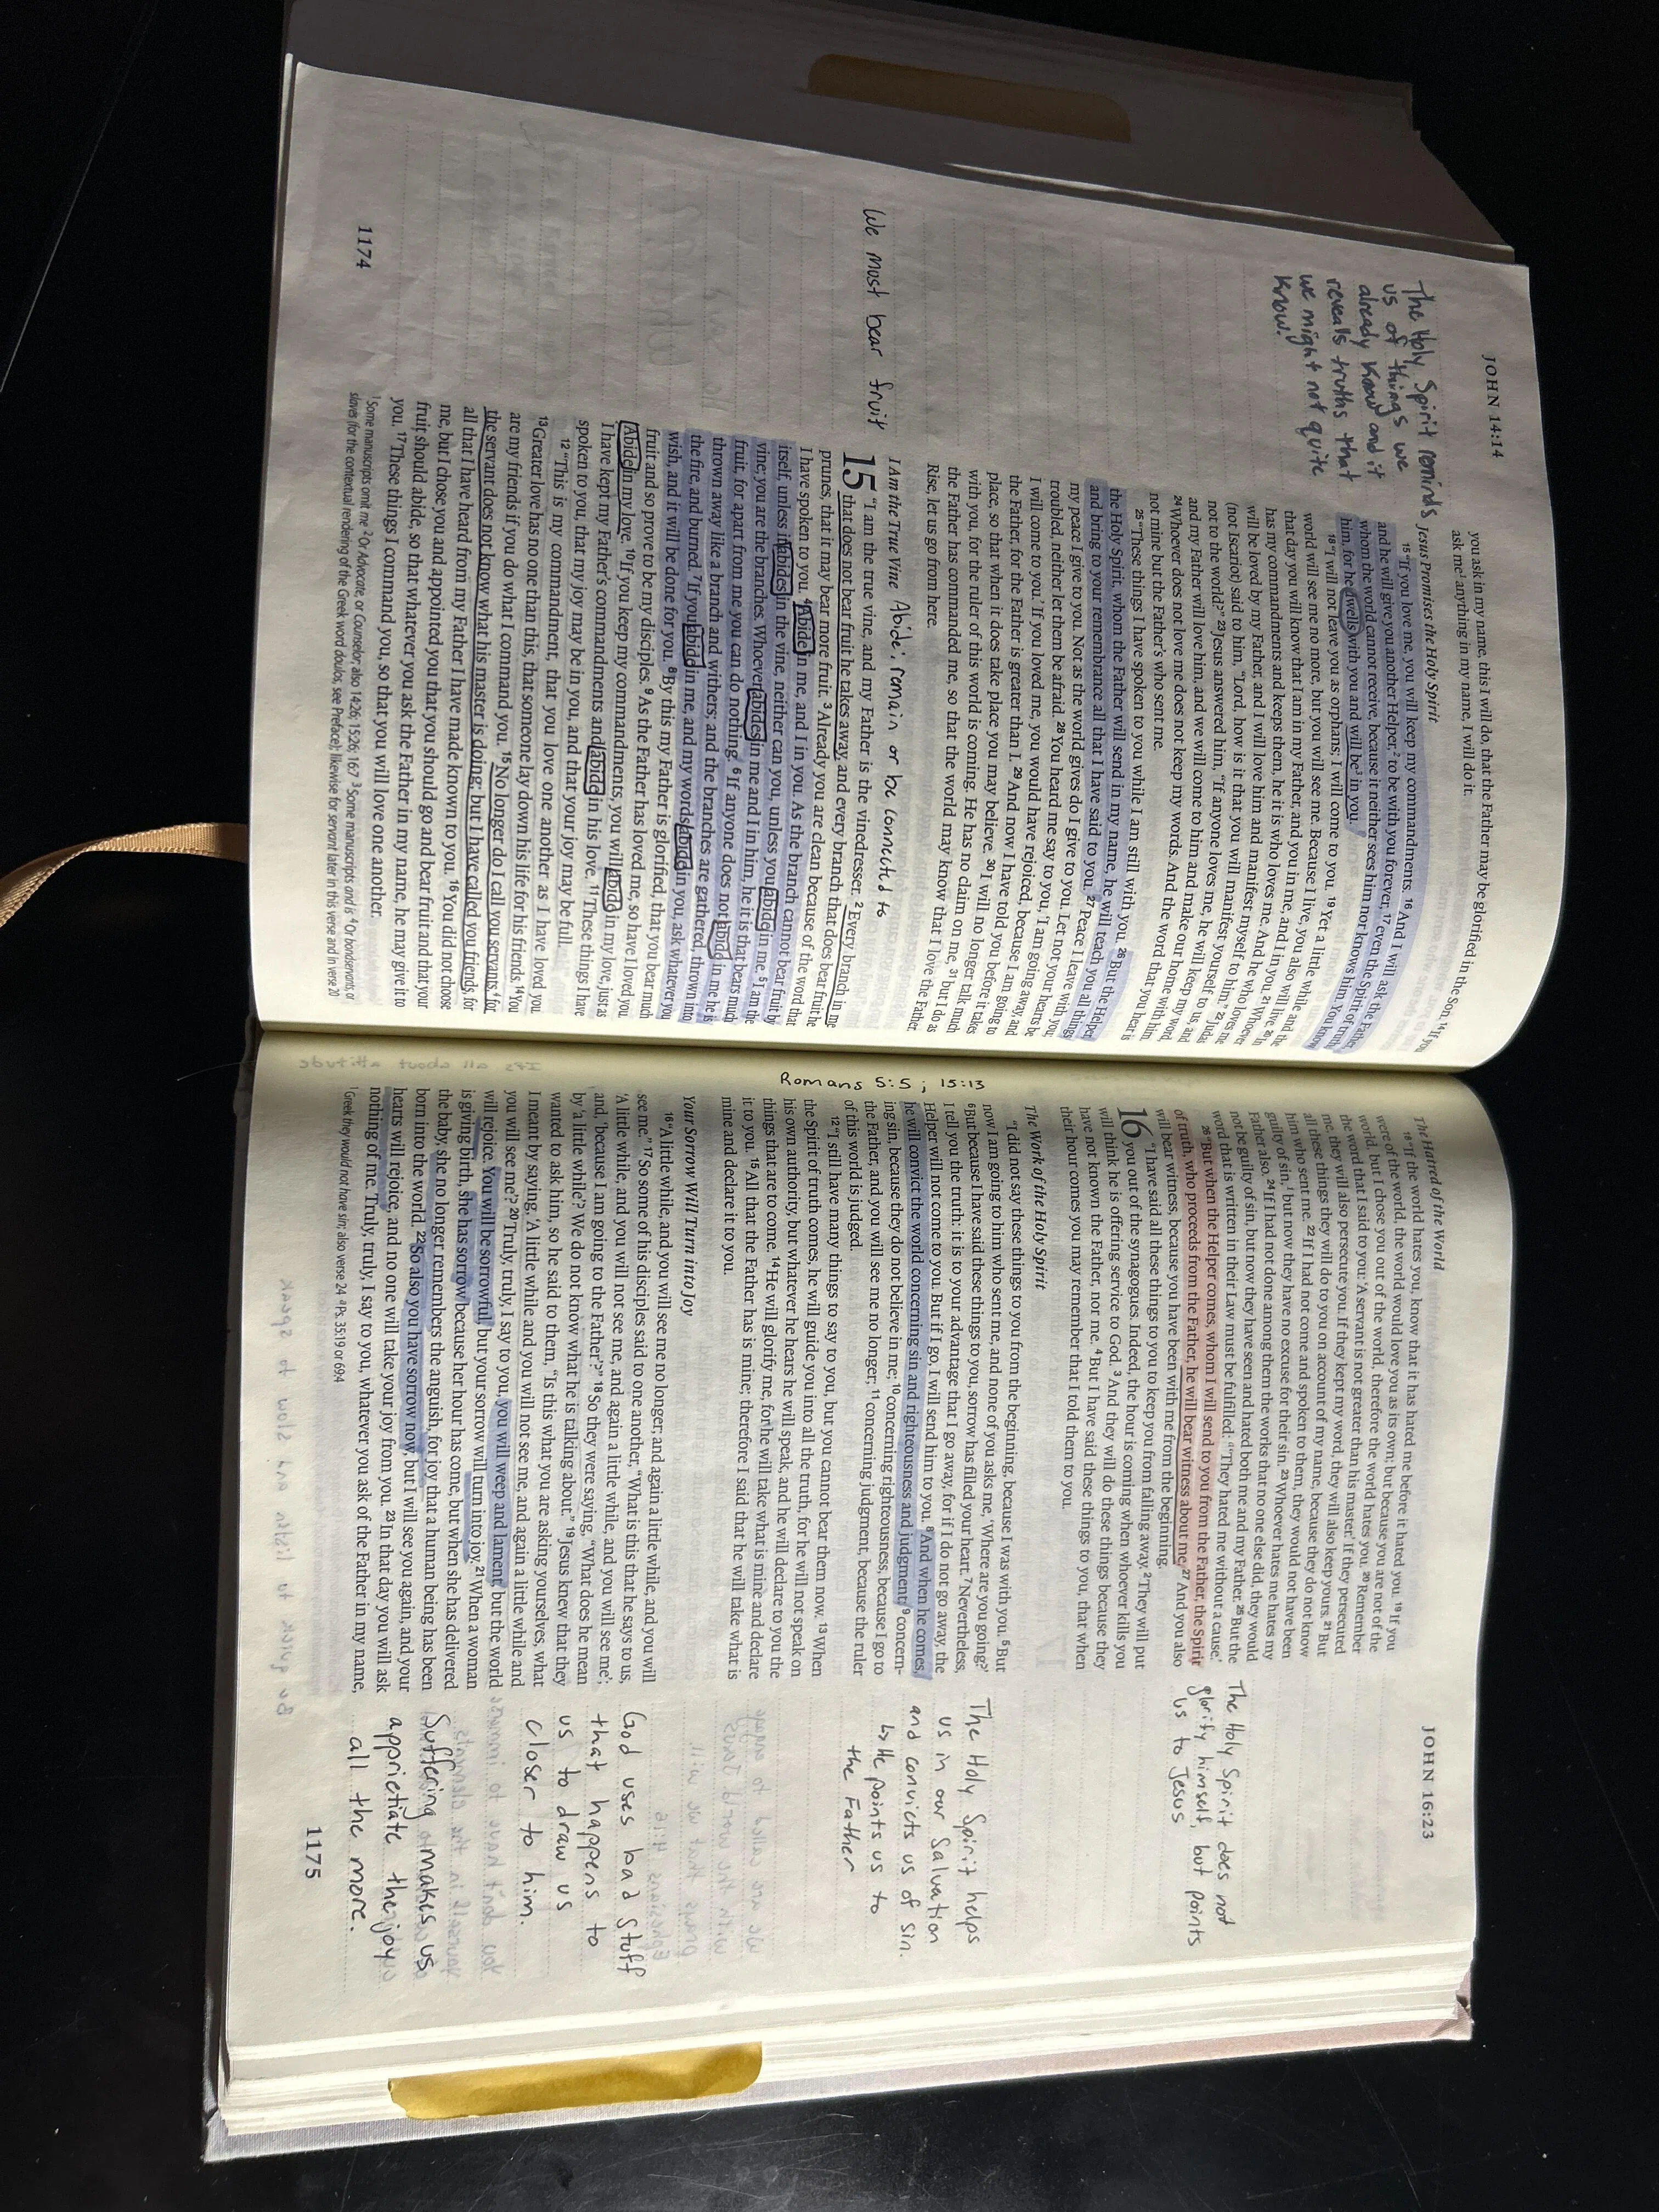 JOHN 14:14
you ask in my name, this I will do, that the Father may be glorified in the Son. 14 If you
ask me¹ anything in my name, I will do it.
Jesus Promises the Holy Spirit
The Holy Spirit reminds
us of things we
already know and it
reveals truths that
we might not quite
know.
15 "If you love me, you will keep my commandments. 16 And I will ask the Father,
and he will give you another Helper,² to be with you forever, 17 even the Spirit of truth,
whom the world cannot receive, because it neither sees him nor knows him. You know
him, for he dwells with you and will be³ in you.
18 "I will not leave you as orphans; I will come to you. 19 Yet a little while and the
world will see me no more, but you will see me. Because I live, you also will live. 20 In
that day you will know that I am in my Father, and you in me, and I in you. 21 Whoever
has my commandments and keeps them, he it is who loves me. And he who loves me
will be loved by my Father, and I will love him and manifest myself to him." 22 Judas
(not Iscariot) said to him, "Lord, how is it that you will manifest yourself to us, and
not to the world?" 23 Jesus answered him, "If anyone loves me, he will keep my word,
and my Father will love him, and we will come to him and make our home with him.
24 Whoever does not love me does not keep my words. And the word that you hear is
not mine but the Father's who sent me.
25 "These things I have spoken to you while I am still with you. 26 But the Helper,
the Holy Spirit, whom the Father will send in my name, he will teach you all things
and bring to your remembrance all that I have said to you. 27 Peace I leave with you;
my peace I give to you. Not as the world gives do I give to you. Let not your hearts be
troubled, neither let them be afraid. 28 You heard me say to you, 'I am going away, and
I will come to you.' If you loved me, you would have rejoiced, because I am going to
the Father, for the Father is greater than I. 29 And now I have told you before it takes
place, so that when it does take place you may believe. 30 I will no longer talk much
with you, for the ruler of this world is coming. He has no claim on me, 31 but I do as
the Father has commanded me, so that the world may know that I love the Father.
Rise, let us go from here.
I Am the True Vine Abide; remain or be connected to
We most bear fruit
15 "I am the true vine, and my Father is the vinedresser. 2 Every branch in me
that does not bear fruit he takes away, and every branch that does bear fruit he
prunes, that it may bear more fruit. 3 Already you are clean because of the word that
I have spoken to you. 4 Abide in me, and I in you. As the branch cannot bear fruit by
itself, unless it abides in the vine, neither can you, unless you abide in me. 5 I am the
vine; you are the branches. Whoever abides in me and I in him, he it is that bears much
fruit, for apart from me you can do nothing. 6 If anyone does not abide in me he is
thrown away like a branch and withers; and the branches are gathered, thrown into
the fire, and burned. 7 If you abide in me, and my words abide in you, ask whatever you
wish, and it will be done for you. 8 By this my Father is glorified, that you bear much
fruit and so prove to be my disciples. 9 As the Father has loved me, so have I loved you.
Abide in my love. 10 If you keep my commandments, you will abide in my love, just as
I have kept my Father's commandments and abide in his love. 11 These things I have
spoken to you, that my joy may be in you, and that your joy may be full.
12 "This is my commandment, that you love one another as I have loved you.
13 Greater love has no one than this, that someone lay down his life for his friends. 14 You
are my friends if you do what I command you. 15 No longer do I call you servants,⁴ for
the servant does not know what his master is doing; but I have called you friends, for
all that I have heard from my Father I have made known to you. 16 You did not choose
me, but I chose you and appointed you that you should go and bear fruit and that your
fruit should abide, so that whatever you ask the Father in my name, he may give it to
you. 17 These things I command you, so that you will love one another.
¹ Some manuscripts omit me ² Or Advocate, or Counselor; also 14:26; 15:26; 16:7 ³ Some manuscripts and is ⁴ Or bondservants, or
slaves (for the contextual rendering of the Greek word doulos, see Preface); likewise for servant later in this verse and in verse 20
1174
JOHN 16:23
The Hatred of the World
18 "If the world hates you, know that it has hated me before it hated you. 19 If you
were of the world, the world would love you as its own; but because you are not of the
world, but I chose you out of the world, therefore the world hates you. 20 Remember
the word that I said to you: 'A servant is not greater than his master.' If they persecuted
me, they will also persecute you. If they kept my word, they will also keep yours. 21 But
all these things they will do to you on account of my name, because they do not know
him who sent me. 22 If I had not come and spoken to them, they would not have been
guilty of sin,¹ but now they have no excuse for their sin. 23 Whoever hates me hates my
Father also. 24 If I had not done among them the works that no one else did, they would
not be guilty of sin, but now they have seen and hated both me and my Father. 25 But the
word that is written in their Law must be fulfilled: ᵃ'They hated me without a cause.'
26 "But when the Helper comes, whom I will send to you from the Father, the Spirit
of truth, who proceeds from the Father, he will bear witness about me. 27 And you also
will bear witness, because you have been with me from the beginning.
The Holy Spirit does not
glorify himself, but points
us to Jesus
16 "I have said all these things to you to keep you from falling away. 2 They will put
you out of the synagogues. Indeed, the hour is coming when whoever kills you
will think he is offering service to God. 3 And they will do these things because they
have not known the Father, nor me. 4 But I have said these things to you, that when
their hour comes you may remember that I told them to you.
The Work of the Holy Spirit
"I did not say these things to you from the beginning, because I was with you. 5 But
now I am going to him who sent me, and none of you asks me, 'Where are you going?'
6 But because I have said these things to you, sorrow has filled your heart. 7 Nevertheless,
I tell you the truth: it is to your advantage that I go away, for if I do not go away, the
Helper will not come to you. But if I go, I will send him to you. 8 And when he comes,
he will convict the world concerning sin and righteousness and judgment: 9 concern-
ing sin, because they do not believe in me; 10 concerning righteousness, because I go to
the Father, and you will see me no longer; 11 concerning judgment, because the ruler
of this world is judged.
The Holy Spirit helps
us in our Salvation
and convicts us of sin.
↳ He points us to
the Father
Romans 5:5 ; 15:13
12 "I still have many things to say to you, but you cannot bear them now. 13 When
the Spirit of truth comes, he will guide you into all the truth, for he will not speak on
his own authority, but whatever he hears he will speak, and he will declare to you the
things that are to come. 14 He will glorify me, for he will take what is mine and declare
it to you. 15 All that the Father has is mine; therefore I said that he will take what is
mine and declare it to you.
Your Sorrow Will Turn into Joy
16 "A little while, and you will see me no longer; and again a little while, and you will
see me." 17 So some of his disciples said to one another, "What is this that he says to us,
'A little while, and you will not see me, and again a little while, and you will see me';
and, 'because I am going to the Father'?" 18 So they were saying, "What does he mean
by 'a little while'? We do not know what he is talking about." 19 Jesus knew that they
wanted to ask him, so he said to them, "Is this what you are asking yourselves, what
I meant by saying, 'A little while and you will not see me, and again a little while and
you will see me'? 20 Truly, truly, I say to you, you will weep and lament, but the world
will rejoice. You will be sorrowful, but your sorrow will turn into joy. 21 When a woman
is giving birth, she has sorrow because her hour has come, but when she has delivered
the baby, she no longer remembers the anguish, for joy that a human being has been
born into the world. 22 So also you have sorrow now, but I will see you again, and your
hearts will rejoice, and no one will take your joy from you. 23 In that day you will ask
nothing of me. Truly, truly, I say to you, whatever you ask of the Father in my name,
God uses bad stuff
that happens to
us to draw us
closer to him.
Suffering makes us
apprietiate the joy
all the more.
¹ Greek they would not have sin; also verse 24 ᵃ Ps. 35:19 or 69:4
1175